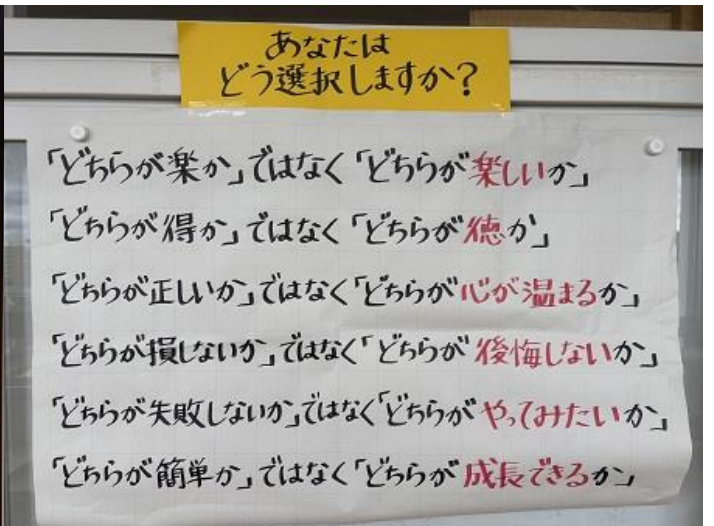 あなたは
どう選択しますか？
「どちらが楽か」ではなく「どちらが楽しいか」
「どちらが得か」ではなく「どちらが徳か」
「どちらが正しいか」ではなく「どちらが心が温まるか」
「どちらが損しないか」ではなく「どちらが後悔しないか」
「どちらが失敗しないか」ではなく「どちらがやってみたいか」
「どちらが簡単か」ではなく「どちらが成長できるか」